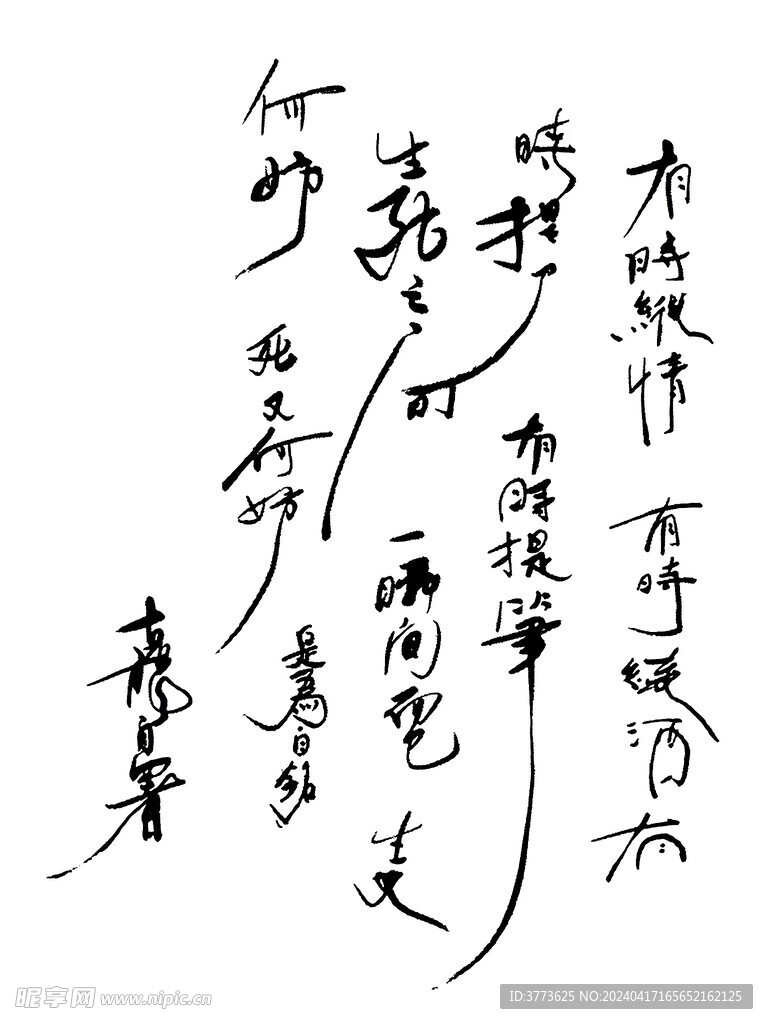 有時縱情 有時縱酒 有
時提刀 有時提筆
生死之 一瞬间而已 生又
何妨 死又何妨
是為自銘
自署
昵享网 www.nipic.cn
ID:3773625 NO:20240417165652162125